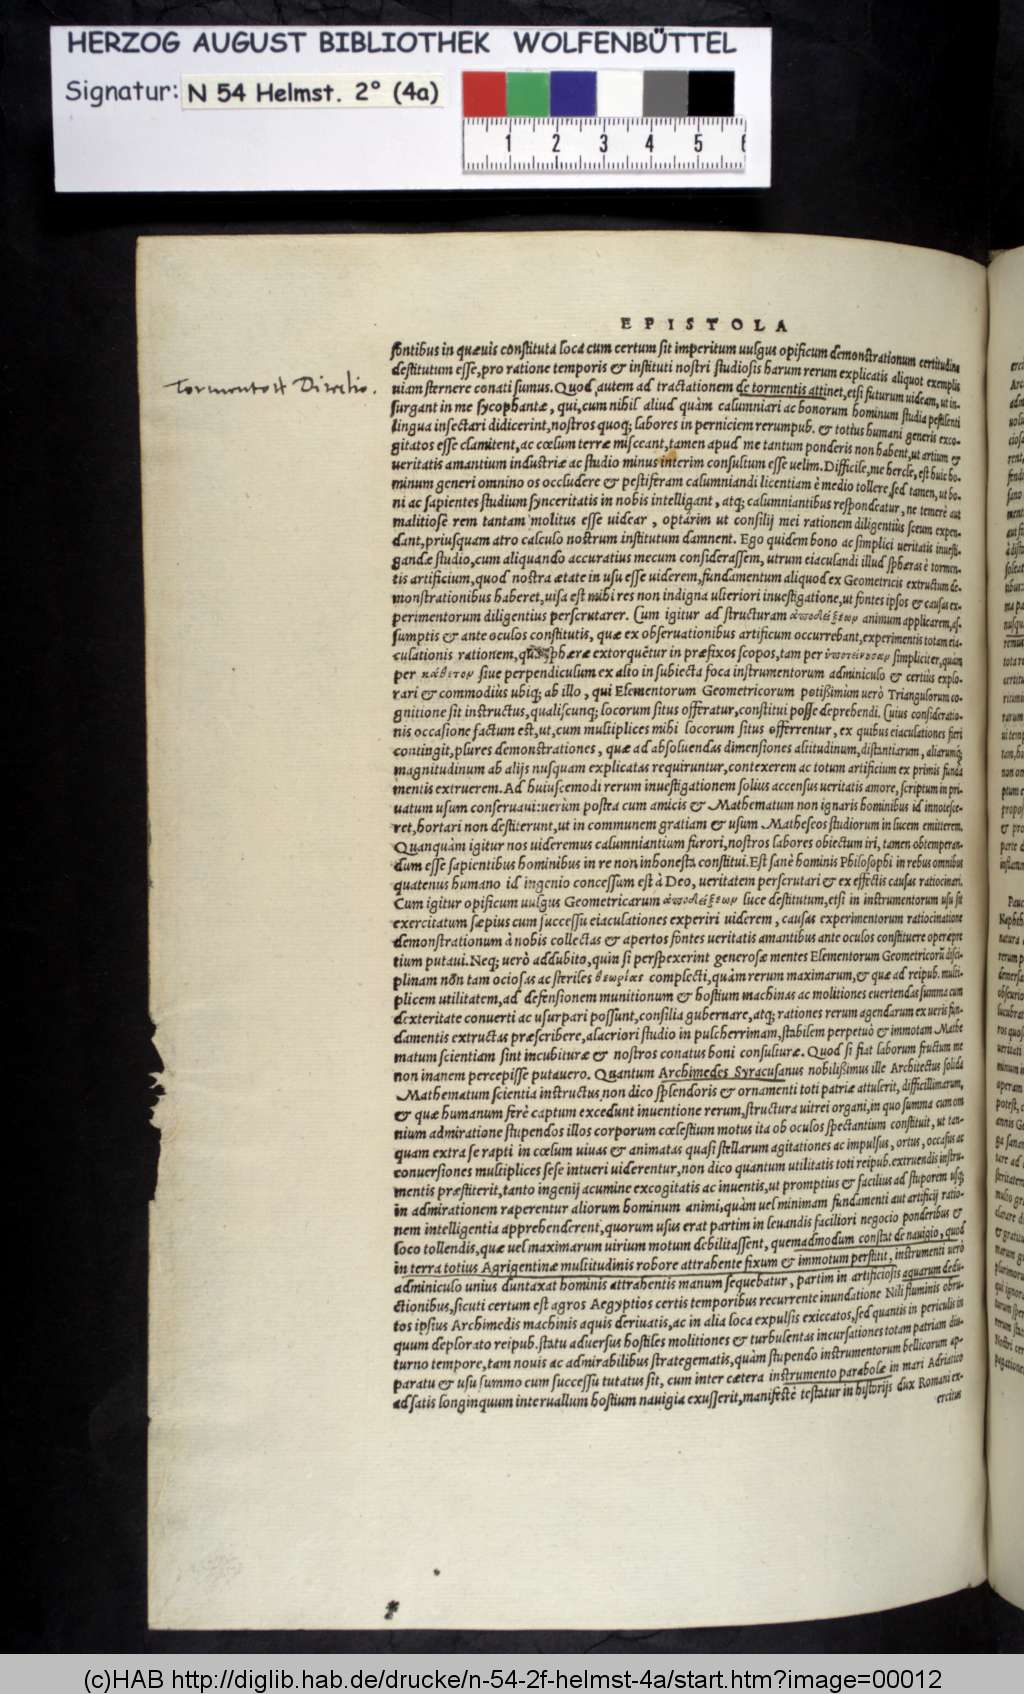 HERZOG AUGUST BIBLIOTHEK WOLFENBÜTTEL
Signatur: N 54 Helmst. 2° (4a)
1 2 3 4 5 6
EPISTOLA
fontibus in quæuis constituta loca cum certum sit imperitum uulgus opificum demonstrationum certitudine
destitutum esse, pro ratione temporis & instituti nostri studiosis harum rerum explicatis aliquot exemplis
uiam sternere conati sumus. Quod autem ad tractationem de tormentis attinet, etsi futurum uideam, ut in-
surgant in me sycophantæ, qui, cum nihil aliud quàm calumniari ac bonorum hominum studia pestilenti
lingua insectari didicerint, nostros quoq; labores in perniciem rerumpub. & totius humani generis exco-
gitatos esse clamitent, ac cœlum terræ misceant, tamen apud me tantum ponderis non habent, ut artium &
ueritatis amantium industriæ ac studio minus interim consultum esse uelim. Difficile, me hercle, est huic ho-
minum generi omnino os occludere & pestiferam calumniandi licentiam è medio tollere, sed tamen, ut bo-
ni ac sapientes studium synceritatis in nobis intelligant, atq; calumniantibus respondeatur, ne temerè aut
malitiosè rem tantam molitus esse uidear, optârim ut consilij mei rationem diligentiùs secum expen-
dant, priusquam atro calculo nostrum institutum damnent. Ego quidem bono ac simplici ueritatis inuesti-
gandæ studio, cum aliquando accuratius mecum considerassem, utrum eiaculandi illud sphæras è tormen-
tis artificium, quod nostra ætate in usu esse uiderem, fundamentum aliquod ex Geometricis extructum de-
monstrationibus haberet, uisa est mihi res non indigna ulteriori inuestigatione, ut fontes ipsos & causas ex-
perimentorum diligentius perscrutarer. Cum igitur ad structuram ἀποδείξεωρ animum applicarem, as-
sumptis & ante oculos constitutis, quæ ex obseruationibus artificum occurrebant, experimentis totam eia-
culationis rationem, sphæræ extorquẽtur in præfixos scopos, tam per ὑποτείνουσαρ simpliciter, quàm
per κάθετορ siue perpendiculum ex alto in subiecta loca instrumentorum adminiculo & certiùs explo-
rari & commodiùs ubiq; ab illo, qui Elementorum Geometricorum potißimùm uerò Triangulorum co-
gnitione sit instructus, qualiscunq; locorum situs offeratur, constitui posse deprehendi. Cuius consideratio-
nis occasione factum est, ut, cum multiplices mihi locorum situs offerrentur, ex quibus eiaculationes fieri
contingit, plures demonstrationes, quæ ad absoluendas dimensiones altitudinum, distantiarum, aliarumq;
magnitudinum ab alijs nusquam explicatas requiruntur, contexerem ac totum artificium ex primis funda
mentis extruerem. Ad huiuscemodi rerum inuestigationem solius accensus ueritatis amore, scriptum in pri-
uatum usum conseruaui: uerùm postea cum amicis & Mathematum non ignaris hominibus id innotesce-
ret, hortari non destiterunt, ut in communem gratiam & usum Matheseos studiorum in lucem emitterem.
Quanquàm igitur nos uideremus calumniantium furori, nostros labores obiectum iri, tamen obtemperan-
dum esse sapientibus hominibus in re non inhonesta constitui. Est sanè hominis Philosophi in rebus omnibus
quatenus humano id ingenio concessum est à Deo, ueritatem perscrutari & ex effectis causas ratiocinari.
Cum igitur opificum uulgus Geometricarum ἀποδείξεωρ luce destitutum, etsi in instrumentorum usu sit
exercitatum sæpius cum successu eiaculationes experiri uiderem, causas experimentorum ratiocinatione
demonstrationum à nobis collectas & apertos fontes ueritatis amantibus ante oculos constituere operæpre
tium putaui. Neq; uerò addubito, quin si perspexerint generosæ mentes Elementorum Geometricorũ disci-
plinam nõn tam ociosas ac steriles θεωρίας complecti, quàm rerum maximarum, & quæ ad reipub. multi-
plicem utilitatem, ad defensionem munitionum & hostium machinas ac molitiones euertendas summa cum
dexteritate conuerti ac usurpari possunt, consilia gubernare, atq; rationes rerum agendarum ex ueris fun-
damentis extructas præscribere, alacriori studio in pulcherrimam, stabilem perpetuò & immotam Mathe
matum scientiam sint incubituræ & nostros conatus boni consulturæ. Quod si fiat laborum fructum me
non inanem percepisse putauero. Quantum Archimedes Syracusanus nobilißimus ille Architectus solida
Mathematum scientia instructus, non dico splendoris & ornamenti toti patriæ attulerit, difficillimarum,
& quæ humanum ferè captum excedunt inuentione rerum, structura uitrei organi, in quo summa cum om
nium admiratione stupendos illos corporum cœlestium motus ita ob oculos spectantium constituit, ut tan-
quam extra se rapti in cœlum uiuas & animatas quasi stellarum agitationes ac impulsus, ortus, occasus ac
conuersiones multiplices sese intueri uiderentur, non dico quantum utilitatis toti reipub. extruendis instru-
mentis præstiterit, tanto ingenij acumine excogitatis ac inuentis, ut promptius & facilius ad stuporem usq;
in admirationem raperentur aliorum hominum animi, quàm uel minimam fundamenti aut artificij ratio-
nem intelligentia apprehenderent, quorum usus erat partim in leuandis faciliori negocio ponderibus &
loco tollendis, quæ uel maximarum uirium motum debilitassent, quemadmodum constat de nauigio, quod
in terra totius Agrigentinæ multitudinis robore attrahente fixum & immotum perstitit, instrumenti uerò
adminiculo unius duntaxat hominis attrahentis manum sequebatur, partim in artificiosis aquarum dedu-
ctionibus, sicuti certum est agros Aegyptios certis temporibus recurrente inundatione Nili fluminis obru-
tos ipsius Archimedis machinis aquis deriuatis, ac in alia loca expulsis exiccatos, sed quantis in periculis in
quum deplorato reipub. statu aduersus hostiles molitiones & turbulentas incursationes totam patriam diu-
turno tempore, tam nouis ac admirabilibus strategematis, quàm stupendo instrumentorum bellicorum ap-
paratu & usu summo cum successu tutatus sit, cum inter cætera instrumento parabolæ in mari Adriatico
ad satis longinquum interuallum hostium nauigia exusserit, manifestè testatur in historijs dux Romani ex-
ercitus
(c)HAB http://diglib.hab.de/drucke/n-54-2f-helmst-4a/start.htm?image=00012